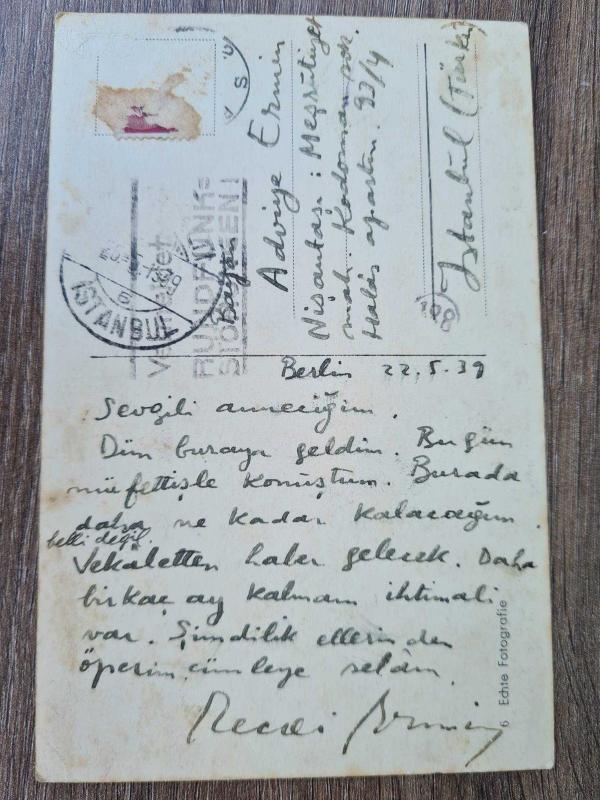 Bayan
Adviye Ermin
Nişantaşı: Meşrutiyet
mah. Kodaman sok.
Halâs apartm. 93/4
Istanbul (Türkiye)
198
ISTANBUL
6
Verhütet
RUNDFUNK=
STÖRUNGEN!
Berlin 22.5.39
Sevgili anneciğim.
Dün buraya geldim. Bugün
müfettişle konuştum. Burada
daha ne kadar kalacağım
belli değil.
Vekâletten haber gelecek. Daha
birkaç ay kalmam ihtimali
var. Şimdilik ellerinden
öperim, cümleye selâm.
Ermin
6 Echte Fotografie